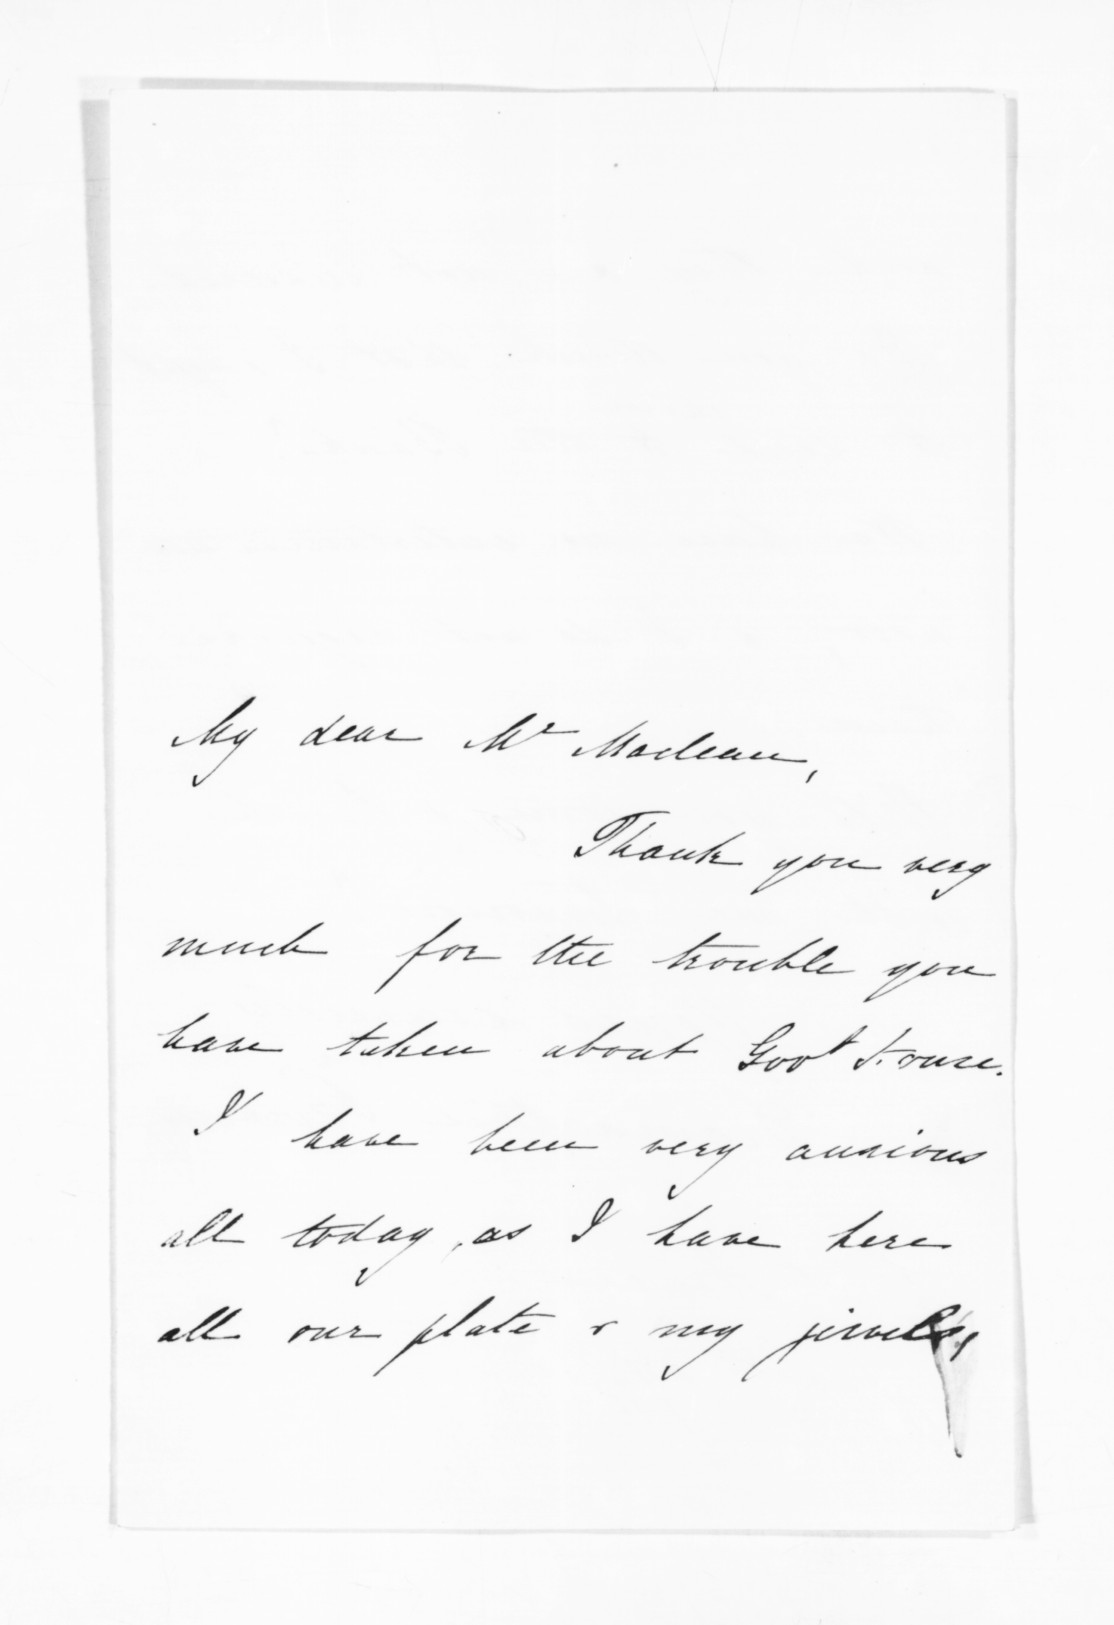 My dear Mr Maclean,
Thank you very
much for the trouble you
have taken about Govt House.
I have been very anxious
all today, as I have here
all our plate & my jewels,